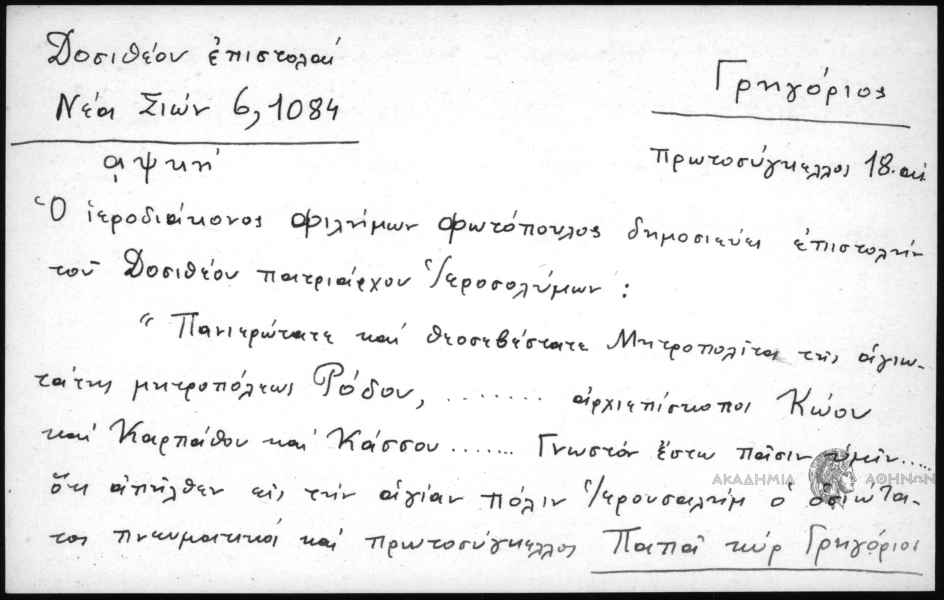 Δοσιθέου ἐπιστολαί
Νέα Σιών 6, 1084
αψκη'
Γρηγόριος
πρωτοσύγκελλος 18. αἰ
Ὁ ἱεροδιάκονος Φιλήμων Φωτόπουλος δημοσιεύει ἐπιστολὴν
τοῦ Δοσιθέου πατριάρχου Ἱεροσολύμων :
“ Πανιερώτατε καὶ θεοσεβέστατε Μητροπολῖτα τῆς ἁγιω-
τάτης μητροπόλεως Ρόδου, ........ ἀρχιεπίσκοποι Κώου
καὶ Καρπάθου καὶ Κάσσου ....... Γνωστόν ἔστω πᾶσιν ὑμῖν .....
ὅτι ἀπῆλθεν εἰς τὴν ἁγίαν πόλιν Ἱερουσαλὴμ ὁ ὁσιώτα-
τος πνευματικὸς καὶ πρωτοσύγκελλος Παπᾶ κὺρ Γρηγόριος
ΑΚΑΔΗΜΙΑ ΑΘΗΝΩΝ